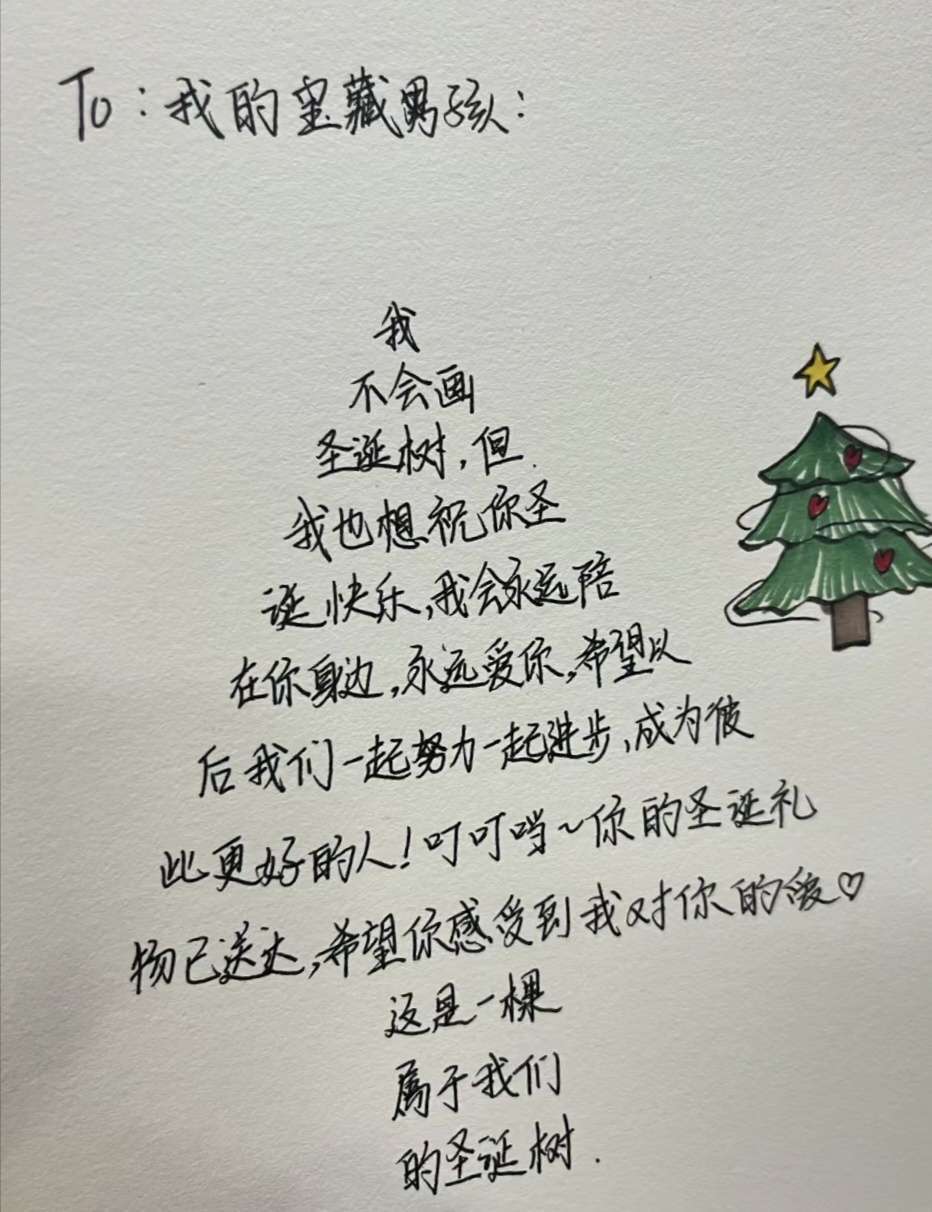 To：我的宝藏男孩：
我
不会画
圣诞树，但
我也想祝你圣
诞快乐，我会永远陪
在你身边，永远爱你，希望以
后我们一起努力一起进步，成为彼
此更好的人！叮叮当~你的圣诞礼
物已送达，希望你感受到我对你的爱♡
这是一棵
属于我们
的圣诞树.